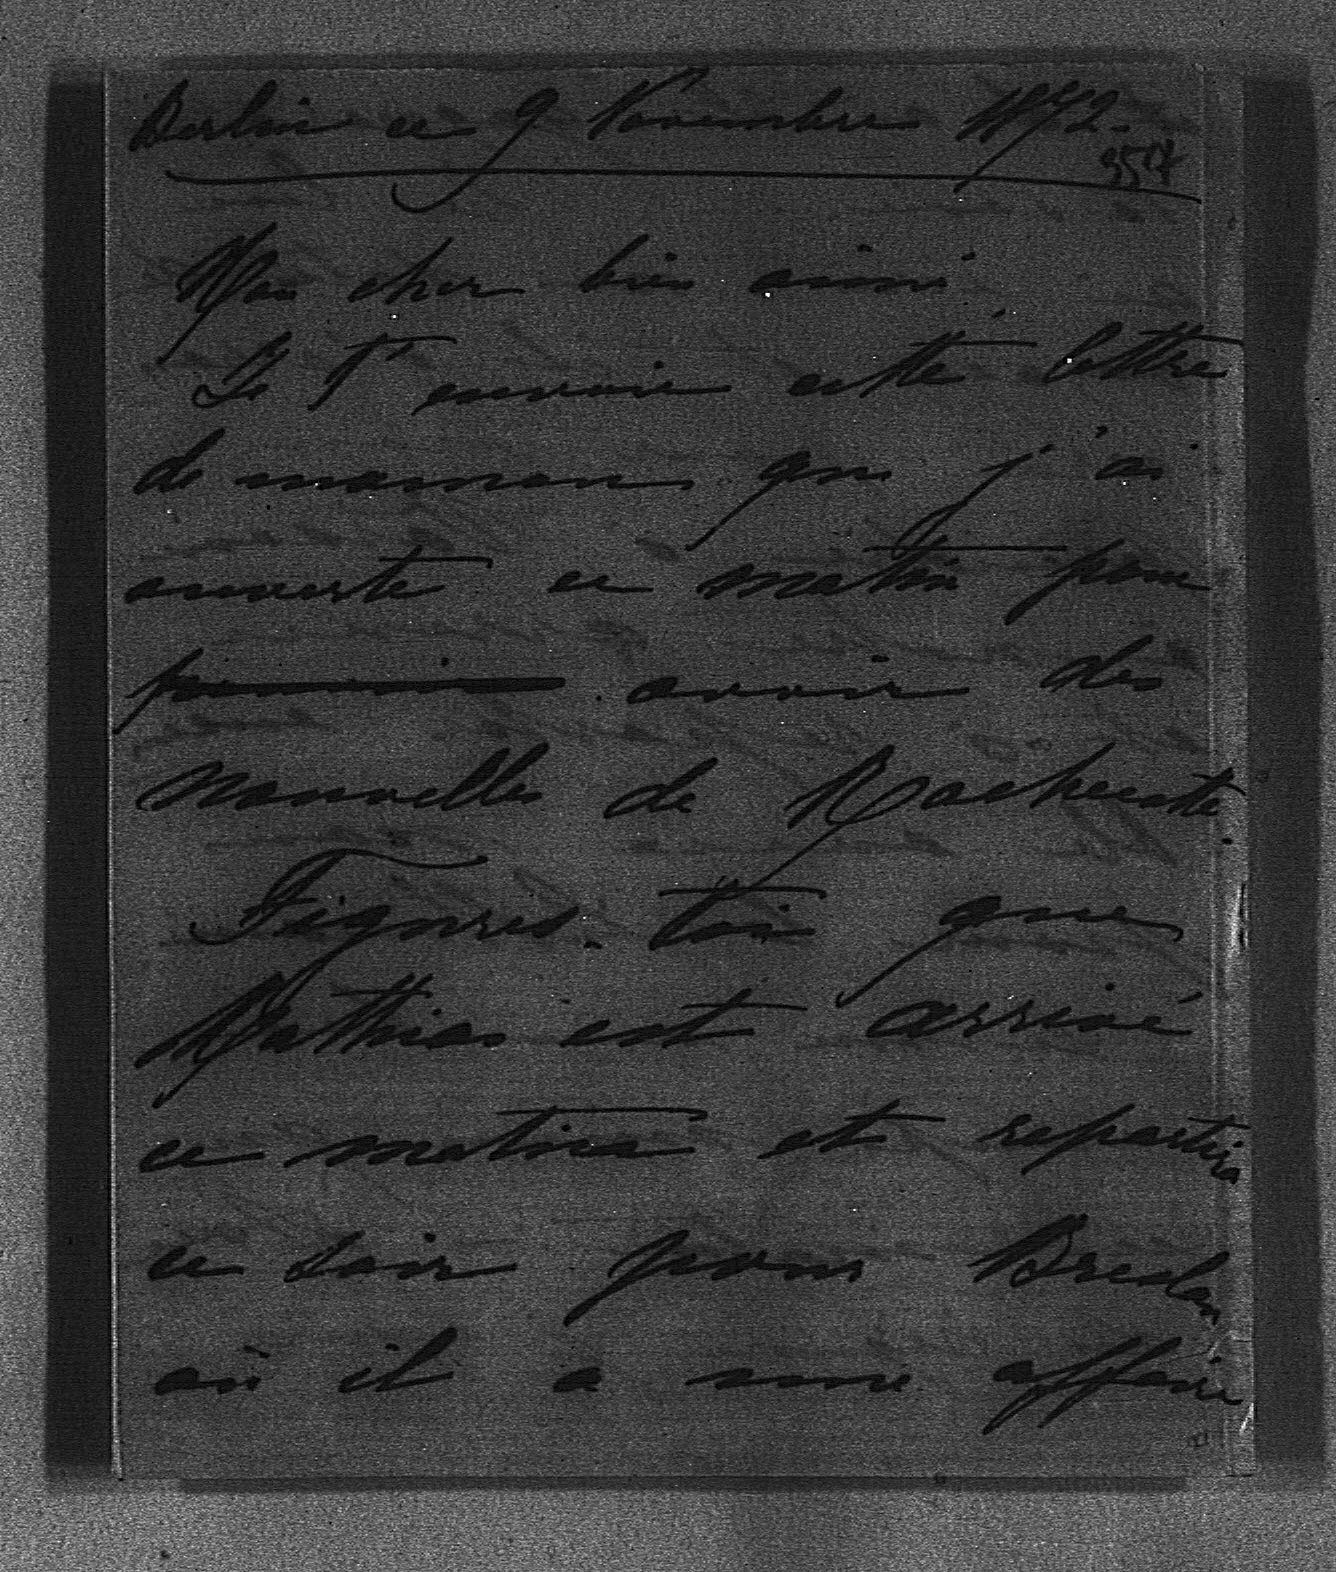 Berlin ce 9 Novembre 1872.
Mon cher bien aimé
Je t'envoie cette lettre
de maman que j'ai
ouverte ce matin pour
avoir des
nouvelles de
Figures-toi que
Mathias est arrivé
ce matin et repartira
ce soir pour Breslau
où il a une affaire